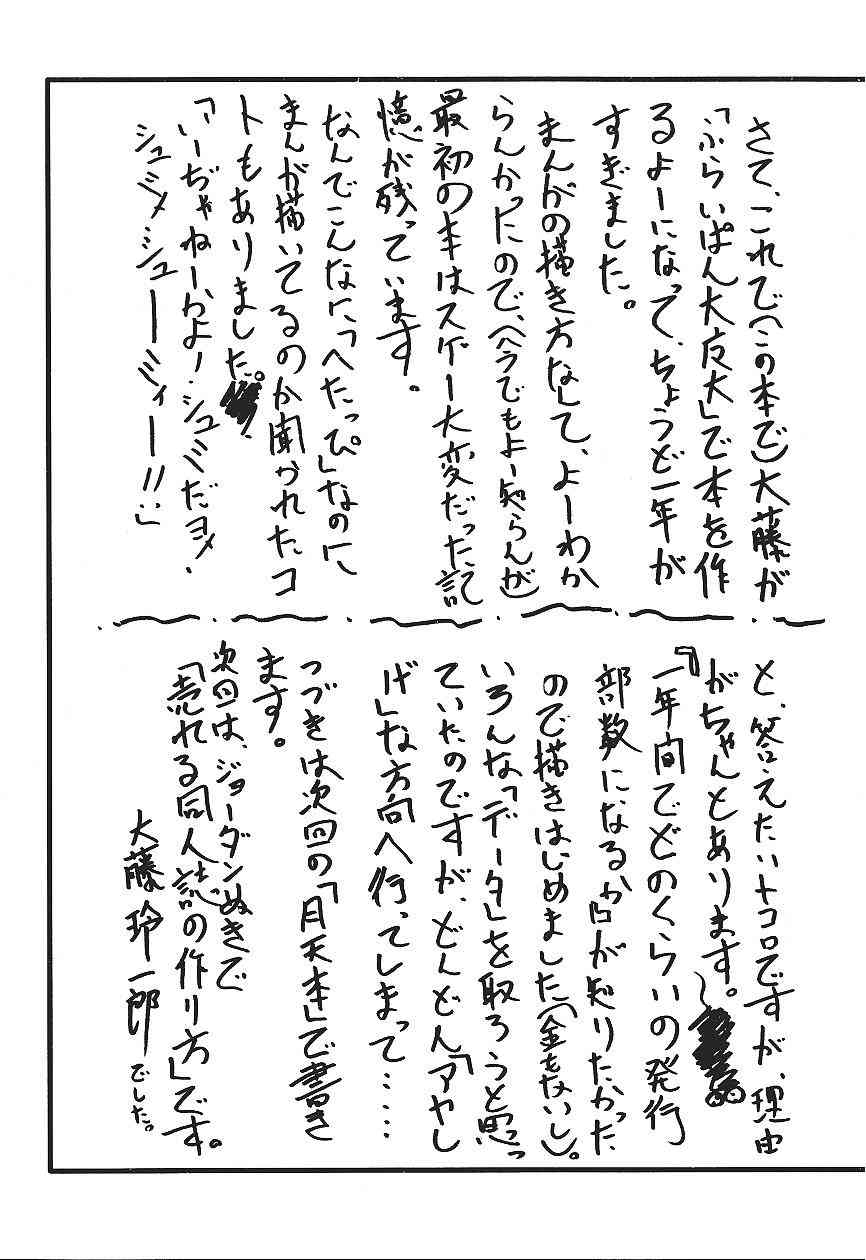 さて、これで(この本で)大藤が
「ふらいぱん大反大」で本を作
るよーになって、ちょうど一年が
すぎました。
まんがの描き方なして、よーわか
らんかったので、(今でもよー知らんが)
最初の本はスゲー大変だった記
憶が残っています。
なんでこんなに「へたっぴ」なのに
まんが描いてるのか聞かれたコ
トもありました。
「いーぢゃねーかよー・シュミだヨ・
シュミシュミシューーミィー!!」
と、答えたいトコロですが、理由
がちゃんとあります。
『一年間でどのくらいの発行
部数になるか』が知りたかった
ので描きはじめました(金もないし)。
いろんな「データ」を取ろうと思っ
ていたのですが、どんどん「アヤし
げ」な方向へ行ってしまって‥‥
つづきは次回の「月天本」で書き
ます。
次回は、ジョーダンぬきで
「売れる同人誌の作り方」です。
大藤玲一郎でした。